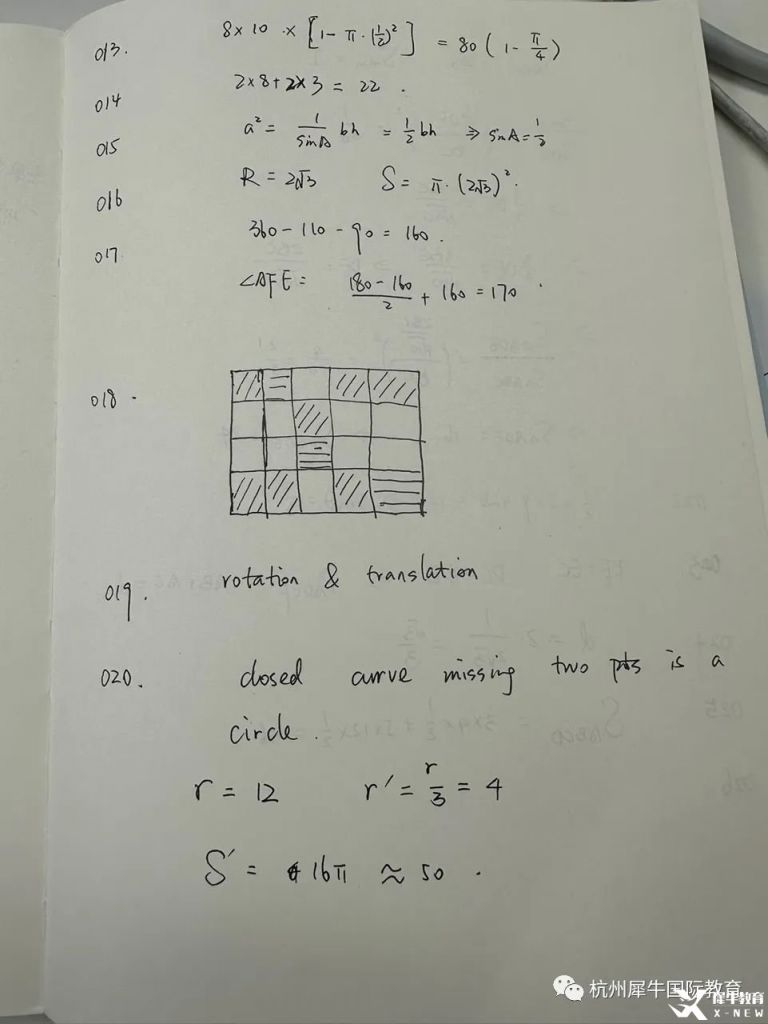 013. 8×10 × [1-π·(1/2)²] = 80(1-π/4)
014 2×8+2×3 = 22.
015 a² = 1/sinA bh = 1/2 bh ⇒ sinA = 1/2
016 R = 2√3 S = π·(2√3)².
017. 360-110-90 = 160.
∠AFE = (180-160)/2 + 160 = 170.
018.
019. rotation & translation
020. closed curve missing two pts is a
circle.
r = 12 r' = r/3 = 4
S' = 16π ≈ 50.
杭州犀牛国际教育
犀牛教育
X-NEW